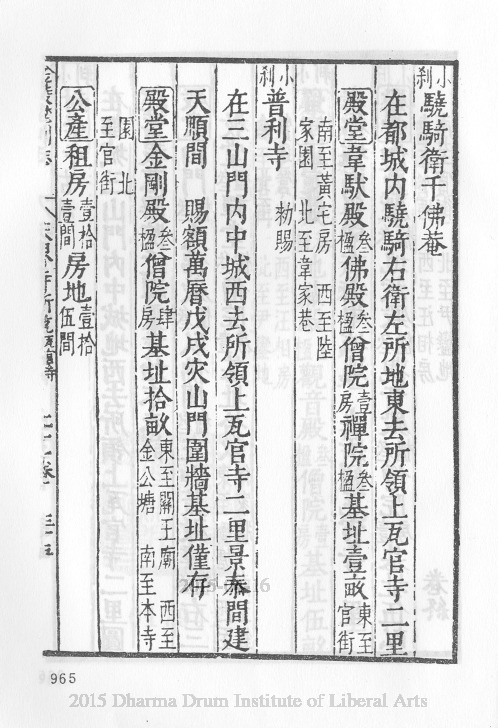 小刹 驍騎衛千佛菴
在都城内驍騎右衛左所地東去所領上瓦官寺二里
殿堂 韋馱殿叁楹佛殿叁楹僧院壹房禪院叁楹基址壹畝東至官街
南至黄宅房 西至陸家園 北至韋家巷
小刹 普利寺 勑賜
在三山門内中城西去所領上瓦官寺二里景泰間建
天順間 賜額萬曆戊戌灾山門圍牆基址僅存
殿堂 金剛殿叁楹僧院肆房基址拾畝東至關王廟 西至金公塘 南至本寺
園 北至官街
公產 租房壹拾壹間房地壹拾伍間
965
2015 Dharma Drum Institute of Liberal Arts